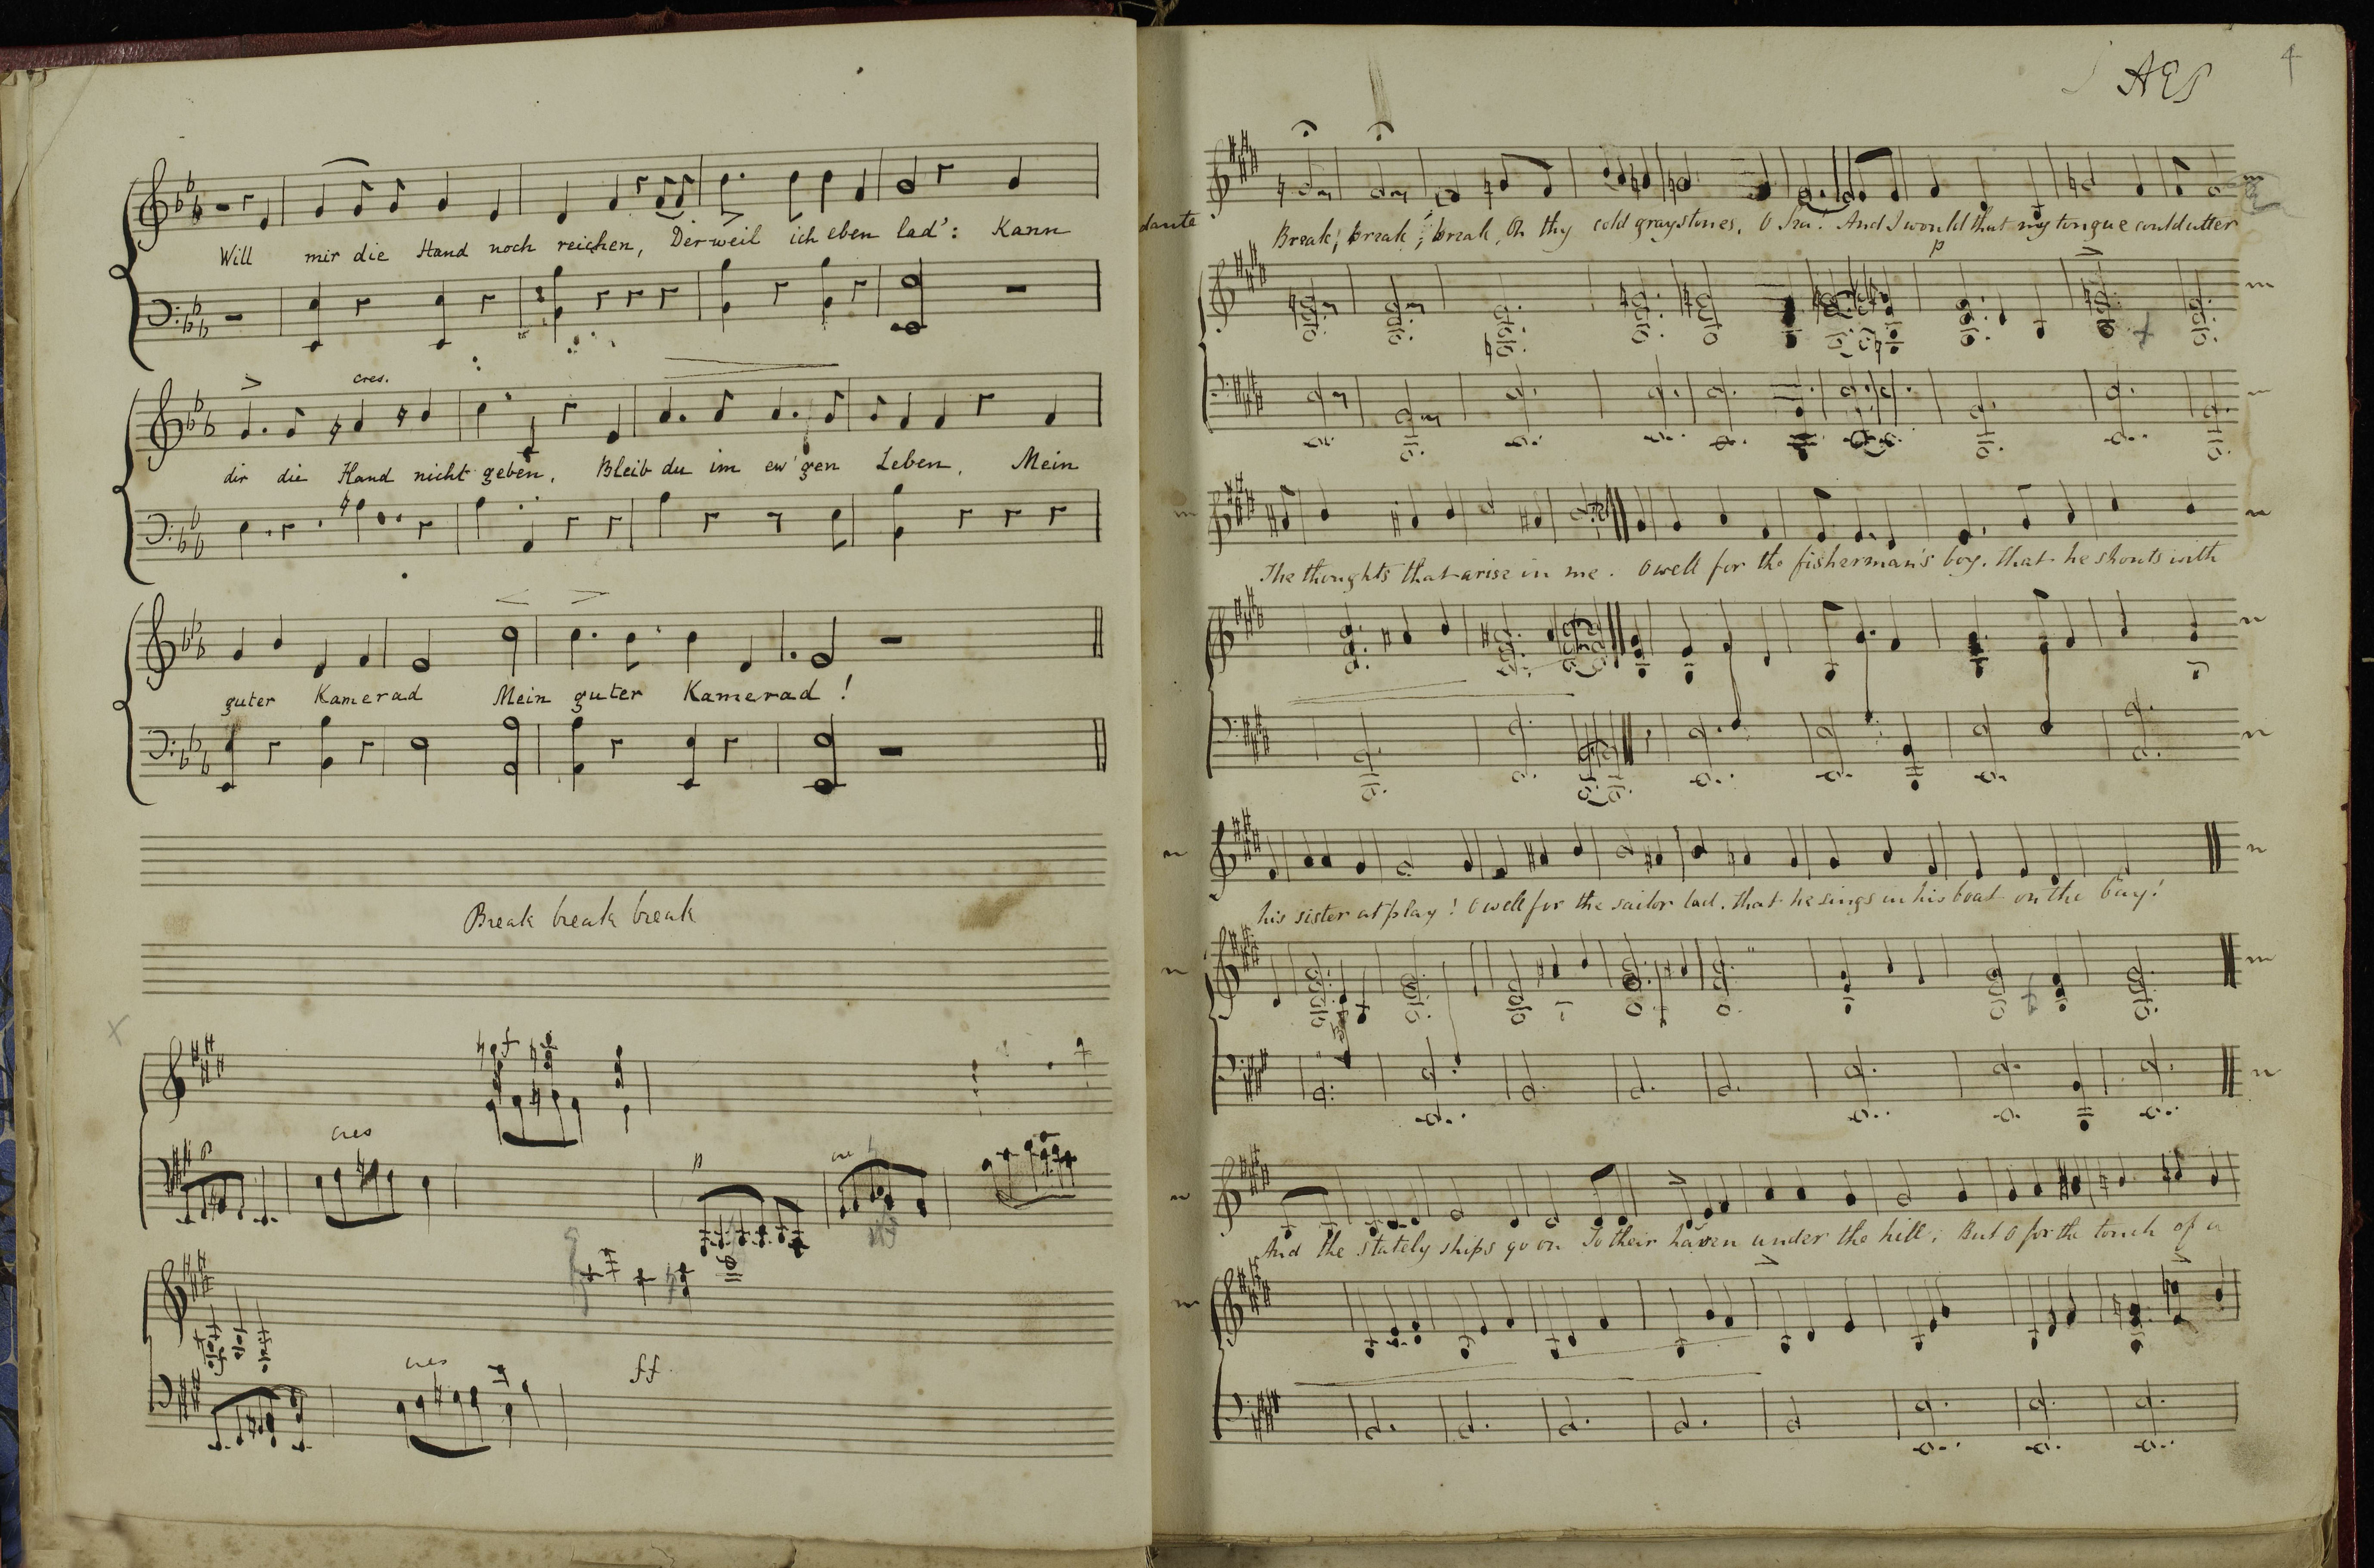 Will mir die Hand noch reichen, Derweil ich eben lad': Kann
cres.
dir die Hand nicht geben, Bleib du im ew'gen Leben, Mein
guter Kamerad Mein guter Kamerad !
Break break break
cres
p
cres
ff.
4
dante
Break, break, break, On thy cold gray stones, O Sea! And I would that my tongue could utter
p
The thoughts that arise in me. O well for the fisherman's boy, that he shouts with
his sister at play! O well for the sailor lad, that he sings in his boat on the bay!
And the stately ships go on To their haven under the hill; But O for the touch of a